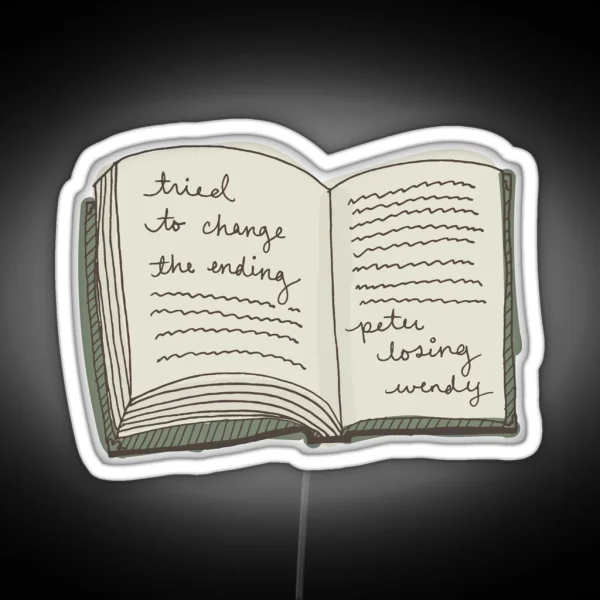 tried
to change
the ending
peter
losing
wendy